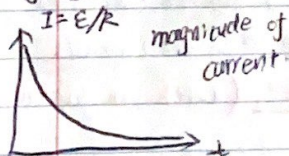 I = ε/R
magnitude of
current
t